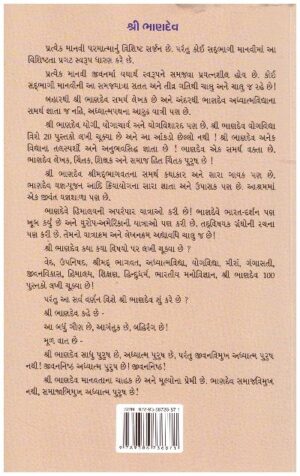 શ્રી ભાણદેવ
પ્રત્યેક માનવી પરમાત્માનું વિશિષ્ટ સર્જન છે. પરંતુ કોઈ સદ્ભાગી માનવીમાં આ
વિશિષ્ટતા પ્રગટ સ્વરૂપ ધારણ કરે છે.
પ્રત્યેક માનવી જીવનમાં યથાર્થ સ્વરૂપને સમજવા પ્રયત્નશીલ હોય છે. કોઈ
સદ્ભાગી માનવીની આ સમજયાત્રા સતત અને તીવ્ર ગતિથી ચાલુ અને ચાલુ જ રહે છે!
બહારથી શ્રી ભાણદેવ સમર્થ લેખક છે અને અંદરથી ભાણદેવ અધ્યાત્મવિદ્યાના
સમર્થ જ્ઞાતા જ નહિ, અધ્યાત્મપથના આરૂઢ યાત્રી પણ છે.
શ્રી ભાણદેવ યોગી, યોગાચાર્ય અને યોગવિશારદ પણ છે. શ્રી ભાણદેવ યોગવિદ્યા
વિશે 20 પુસ્તકો લખી ચૂક્યા છે અને આ આંકડો છેલ્લો નથી ! શ્રી ભાણદેવ અનેક
વિદ્યાના તલસ્પર્શી અને અનુભવસિદ્ધ જ્ઞાતા છે ! ભાણદેવ એક સમર્થ વક્તા છે.
ભાણદેવ લેખક, ચિંતક, શિક્ષક અને સમાજ હિત ચિંતક પુરુષ છે !
શ્રી ભાણદેવ શ્રીમદ્ભાગવતના સમર્થ કથાકાર અને સારા ગાયક પણ છે.
ભાણદેવ યજ્ઞ-પૂજન આદિ ક્રિયાયોગના સારા જ્ઞાતા અને ઉપાસક પણ છે. આશ્રમમાં
એક જીવંત યજ્ઞશાળા પણ છે.
ભાણદેવે હિમાલયની અપરંપાર યાત્રાઓ કરી છે! ભાણદેવે ભારત-દર્શન પણ
ખૂબ કર્યું છે અને યુરોપ-અમેરિકાની યાત્રાઓ પણ કરી છે. તદ્વિષયક ગ્રંથોની રચના
પણ કરી છે. તેમનો યાત્રાક્રમ અને લેખનક્રમ અદ્યાવધિ ચાલુ જ છે!
શ્રી ભાણદેવ ક્યા ક્યા વિષયો પર લખી ચૂક્યા છે ?
વેદ, ઉપનિષદ, શ્રીમદ્ ભાગવત, અધ્યાત્મવિદ્યા, યોગવિદ્યા, મીરાં, ગંગાસતી,
જીવનવિકાસ, હિમાલય, શિક્ષણ, હિન્દુધર્મ, ભારતીય મનોવિજ્ઞાન, શ્રી ભાણદેવ 100
પુસ્તકો લખી ચૂક્યા છે!
પરંતુ આ સર્વ વર્ણન વિશે શ્રી ભાણદેવ શું કહે છે ?
શ્રી ભાણદેવ કહે છે -
આ બધું ગૌણ છે, આગંતુક છે, બહિરંગ છે!
મૂળ વાત છે -
શ્રી ભાણદેવ સાધુ પુરુષ છે, અધ્યાત્મ પુરુષ છે, પરંતુ જીવનવિમુખ અધ્યાત્મ પુરુષ
નથી! જીવનનિષ્ઠ અધ્યાત્મ પુરુષ છે! જીવનનિષ્ઠ!
શ્રી ભાણદેવ માનવતાના ચાહક છે અને મૂલ્યોના પ્રેમી છે. ભાણદેવ સમાજવિમુખ
નથી, સમાજાભિમુખ અધ્યાત્મ પુરુષ છે!